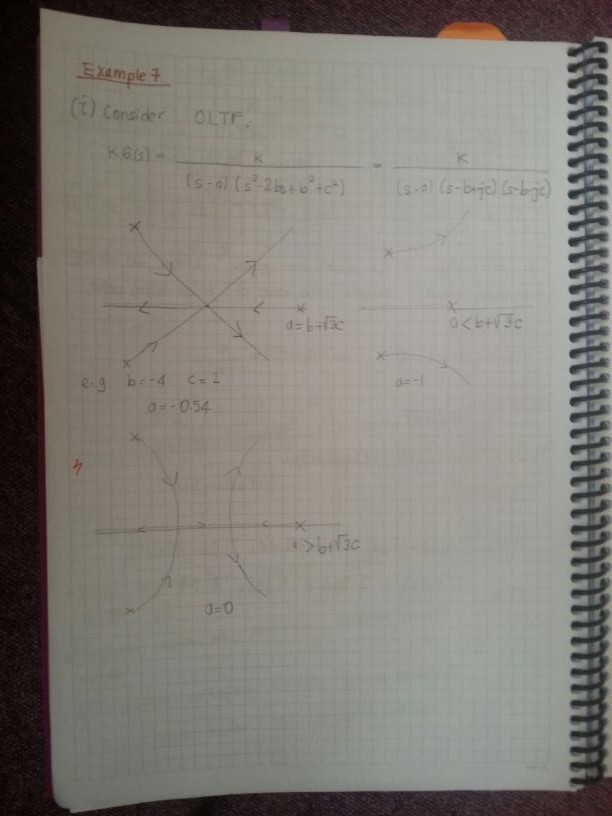 Example 7
(i) Consider OLTF.
KG(s) = K / (s-a) (s²-2bs+b²+c²) = K / (s-a) (s-b+jc) (s-b-jc)
a=b+√3c
a<b+√3c
e.g b=-4 c=2
a=-0.54
a=-1
>b+√3c
a=0